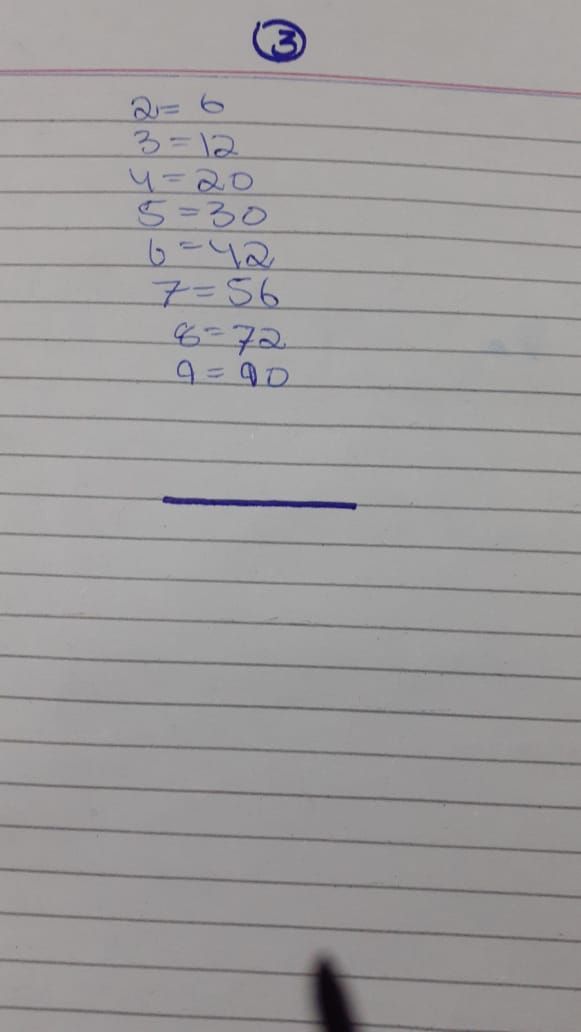 3
2= 6
3=12
4=20
5=30
6=42
7=56
8=72
9=90